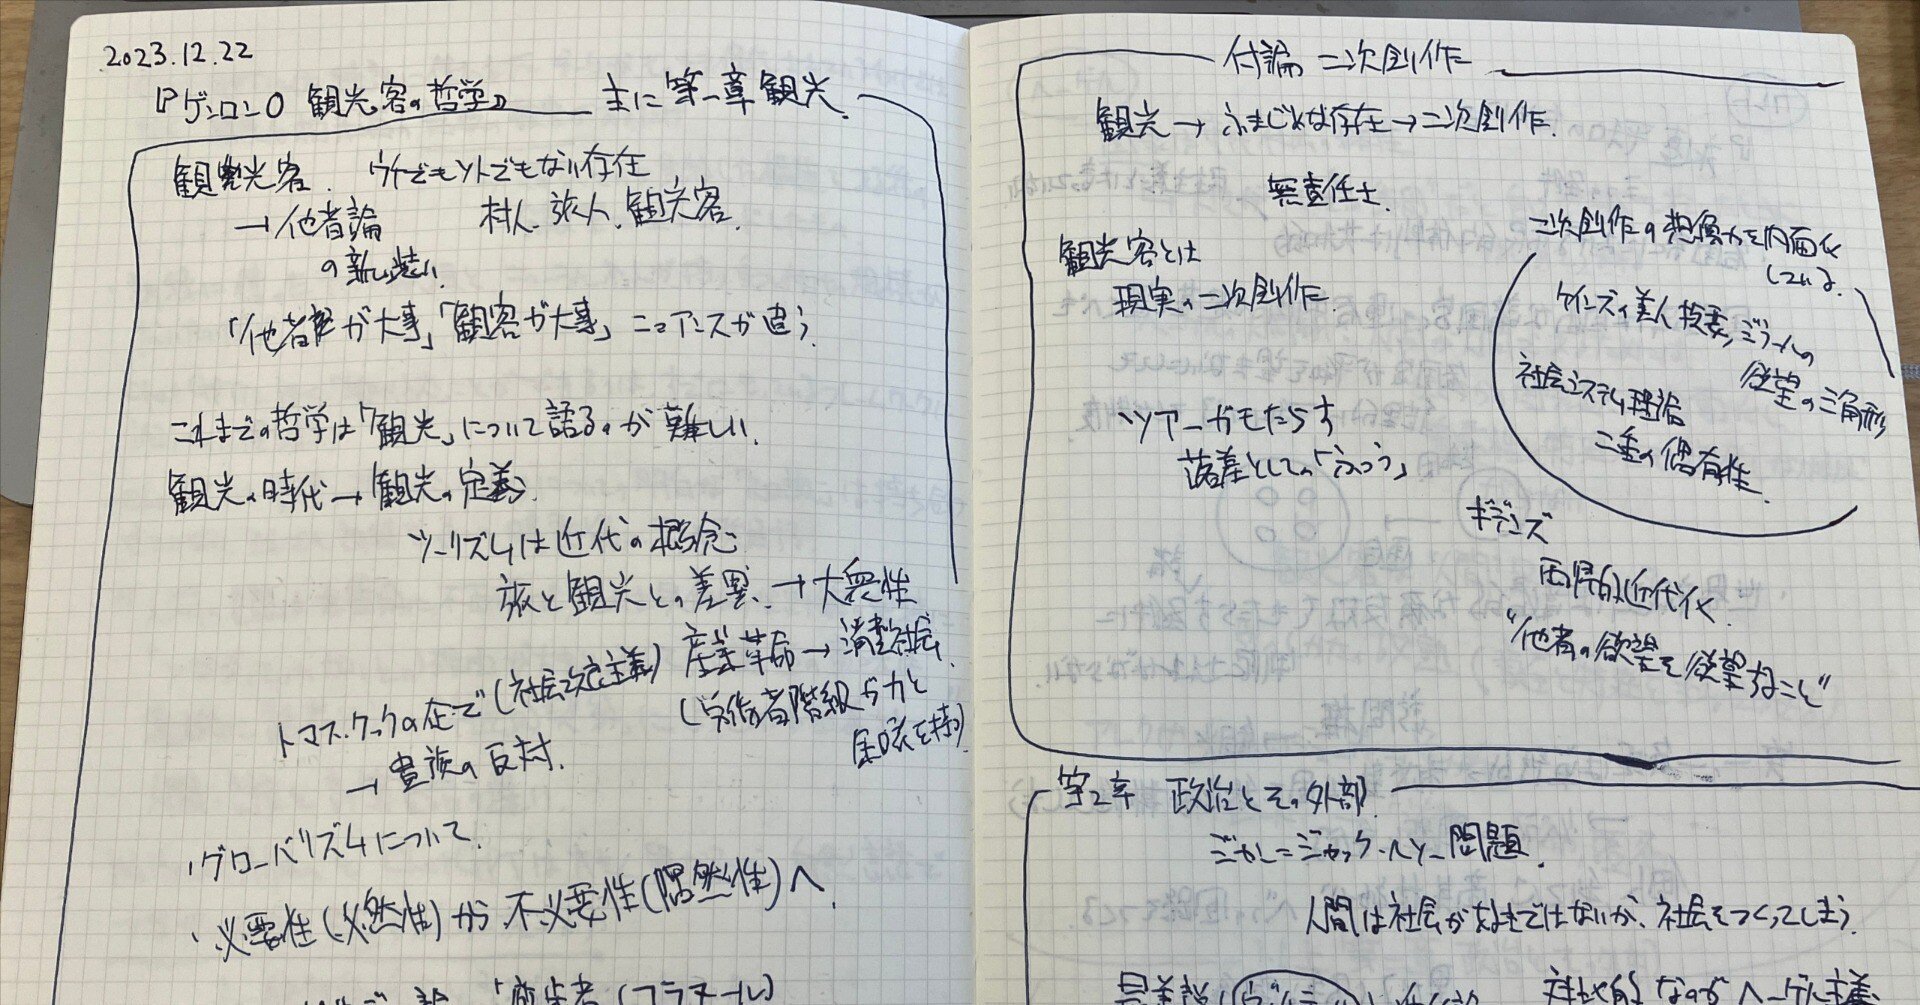 2023.12.22
『ゲンロン0 観光客の哲学』 主に第一章 観光
観光客. ウチでもソトでもない存在
→他者論 村人、旅人、観光客.
の新しい装い
「他者が大事」「観客が大事」ニュアンスが違う.
これまでの哲学は「観光」について語るのが難しい.
観光の時代→観光の定義.
ツーリズムは近代の概念
旅と観光との差異.→大衆性
産業革命→消費社会.
(労働者階級が力と
余暇を持つ)
トマス・クックの企て(社会改良主義)
→貴族の反対.
・グローバリズムについて.
・必要性(必然性)から不必要性(偶然性)へ.
付論 二次創作
観光→ふまじめな存在→二次創作.
無責任さ.
観光客とは
現実の二次創作
ツアーがもたらす
落差としての「ふつう」
二次創作の想像力を内面化
している.
ケインズの美人投票、ジラールの
欲望の三角形
社会システム理論
二重の偶有性.
ギデンズ
再帰的近代化
"他者の欲望を欲望すること"
第2章 政治とその外部
ジャン=ジャック・ルソー問題.
人間は社会が好きではないが、社会をつくってしまう.